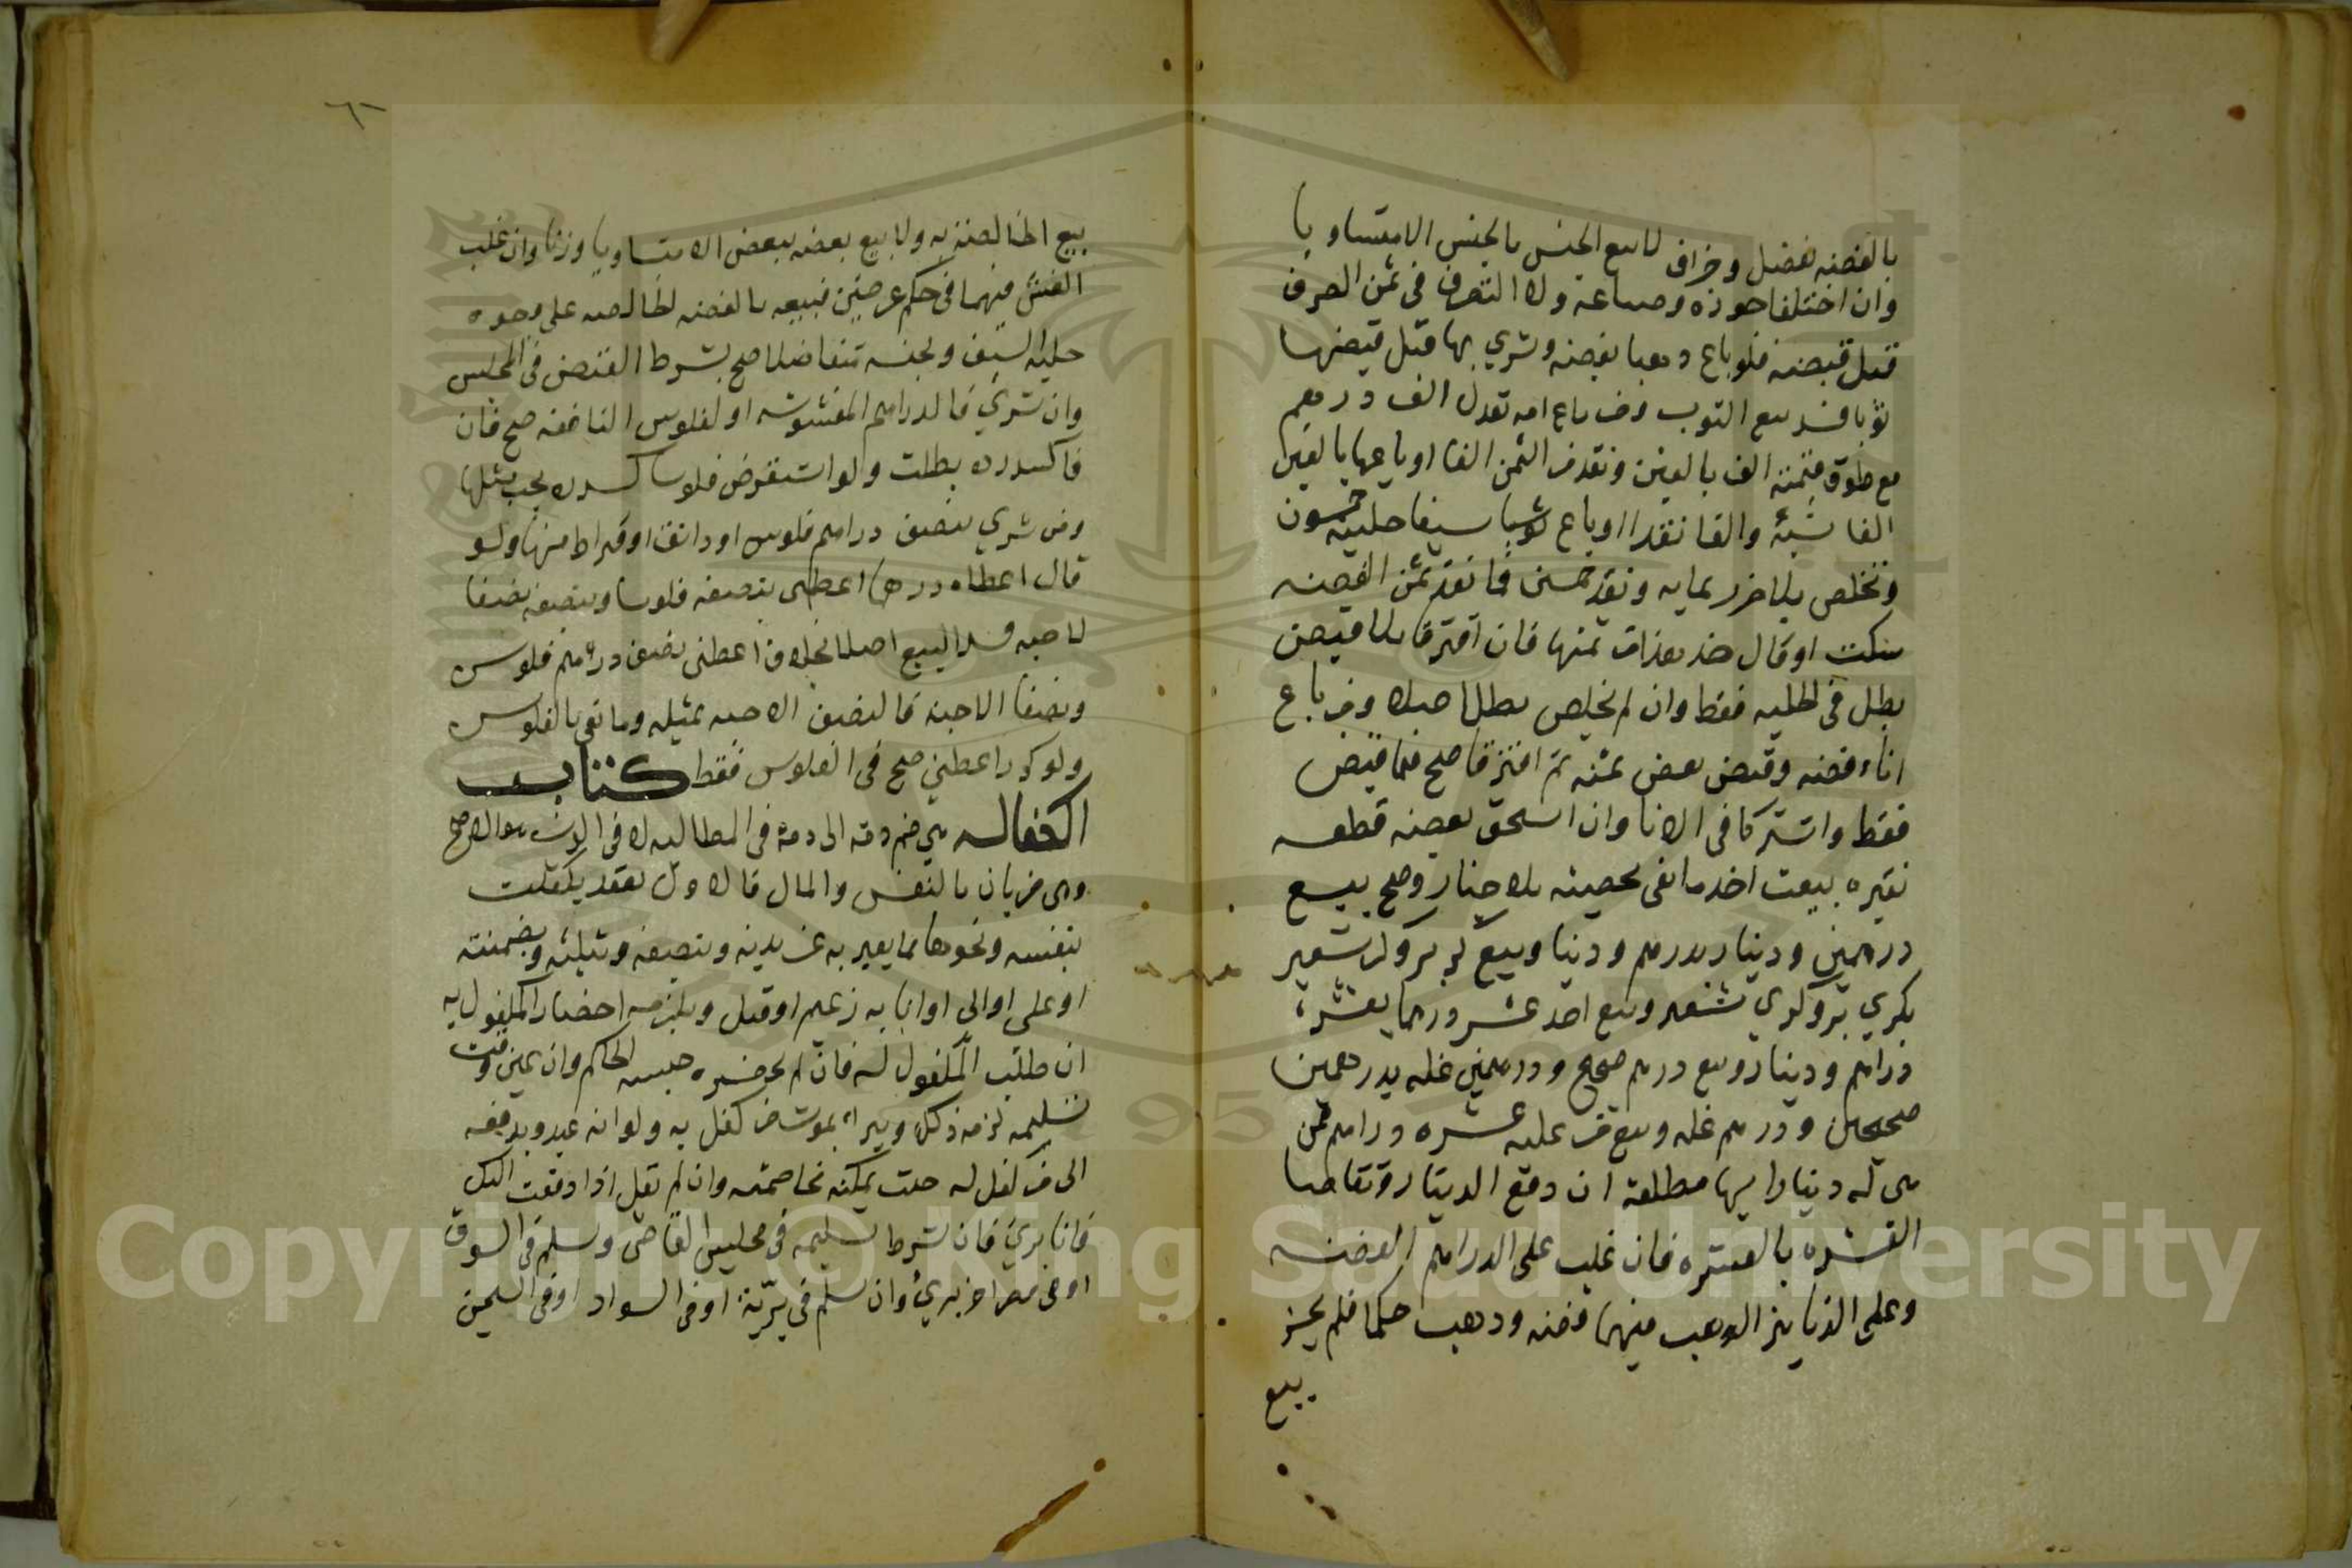 بالفضة بفضل وجزاف لا بيع الجنس بالجنس الا متساويا
وان اختلفا جودة وصياغة ولا التصرف في ثمن الصرف
قبل قبضه فلو باع ذهبا بفضة وشري بها قبل قبضها
ثوبا فسد بيع الثوب ومن باع امة تعدل الف درهم
مع طوق قيمته الف بالفين ونقد من الثمن الفا او باعها بالفين
الفا نسئة والفا نقدا او باع سيفا حليته خمسون
وتخلص بلا ضرر بماية ونقد خمسين فما نقد ثمن الفضة
سكت او قال خذ هذا من ثمنها فان افترقا بلا قبض
بطل في الحلية فقط وان لم يخلص بطل اصلا ومن باع
اناء فضة وقبض بعض ثمنه ثم افترقا صح فيما قبض
فقط واشتركا في الانا وان استحق بعضه قطعه
نقره بيعت اخذ ما بقي بحصته بلا خيار وصح بيع
درهمين ودينار بدرهم ودينارين وبيع كر بر وكر شعير
بكري بر وكري شعير وبيع احد عشر درهما بعشرة
دراهم ودينار وبيع درهم صحيح ودرهمين غلة بدرهمين
صحيحين ودرهم غلة وبيع من عليه عشرة دراهم ممن
هي له دينارا بها مطلقة ان دفع الدينار وتقاصا
العشرة بالعشرة فان غلب على الدراهم الفضة
وعلى الدنانير الذهب فهما فضة وذهب حكما فلم يجز
بيع
٦٠
بيع الخالصة به ولا بيع بعضه ببعض الا متساويا وزنا وان غلب
الغش فهما في حكم عرضين فبيعه بالفضة الخالصة على وجوه
حلية السيف وبجنسه متفاضلا صح بشرط القبض في المجلس
وان شري بالدراهم المغشوشة او الفلوس النافقة صح فان
كسدت بطلت ولو استقرض فلوسا كسدت يجب مثلها
ومن شري بنصف دراهم فلوس او دانق او قيراط منها ولو
قال اعطاه درهما اعطني بنصفه فلوسا وبنصفه نصفا
الا حبة فسد البيع اصلا بخلاف اعطني نصف دراهم فلوس
ونصفا الا حبة فالنصف الا حبة بمثله وما بقي بالفلوس
ولو كرر اعطني صح في الفلوس فقط كتاب
الكفالة هي ضم ذمة الى ذمة في المطالبة لا في الدين هو الاصح
وهي ضربان بالنفس والمال فالاول تعقد بكفلت
بنفسه ونحوها مما يعبر به عن بدنه وبنصفه وبثلثه وبضمنته
او علي او الي او انا به زعيم او قبيل ويلزمه احضار المكفول به
ان طلب المكفول له فان لم يحضره حبسه الحاكم وان عين وقت
تسليمه لزمه ذلك ويبرأ بموت من كفل به ولو انه عبد وبدفعه
الى من كفل له حيث يمكنه مخاصمته وان لم يقل اذا دفعت اليك
فانا بريء فان شرط تسليمه في مجلس القاضي وسلم في السوق
او في مصر اخر بريء وان سلم في برية او في السواد او في السجن
Copyright © King Saud University